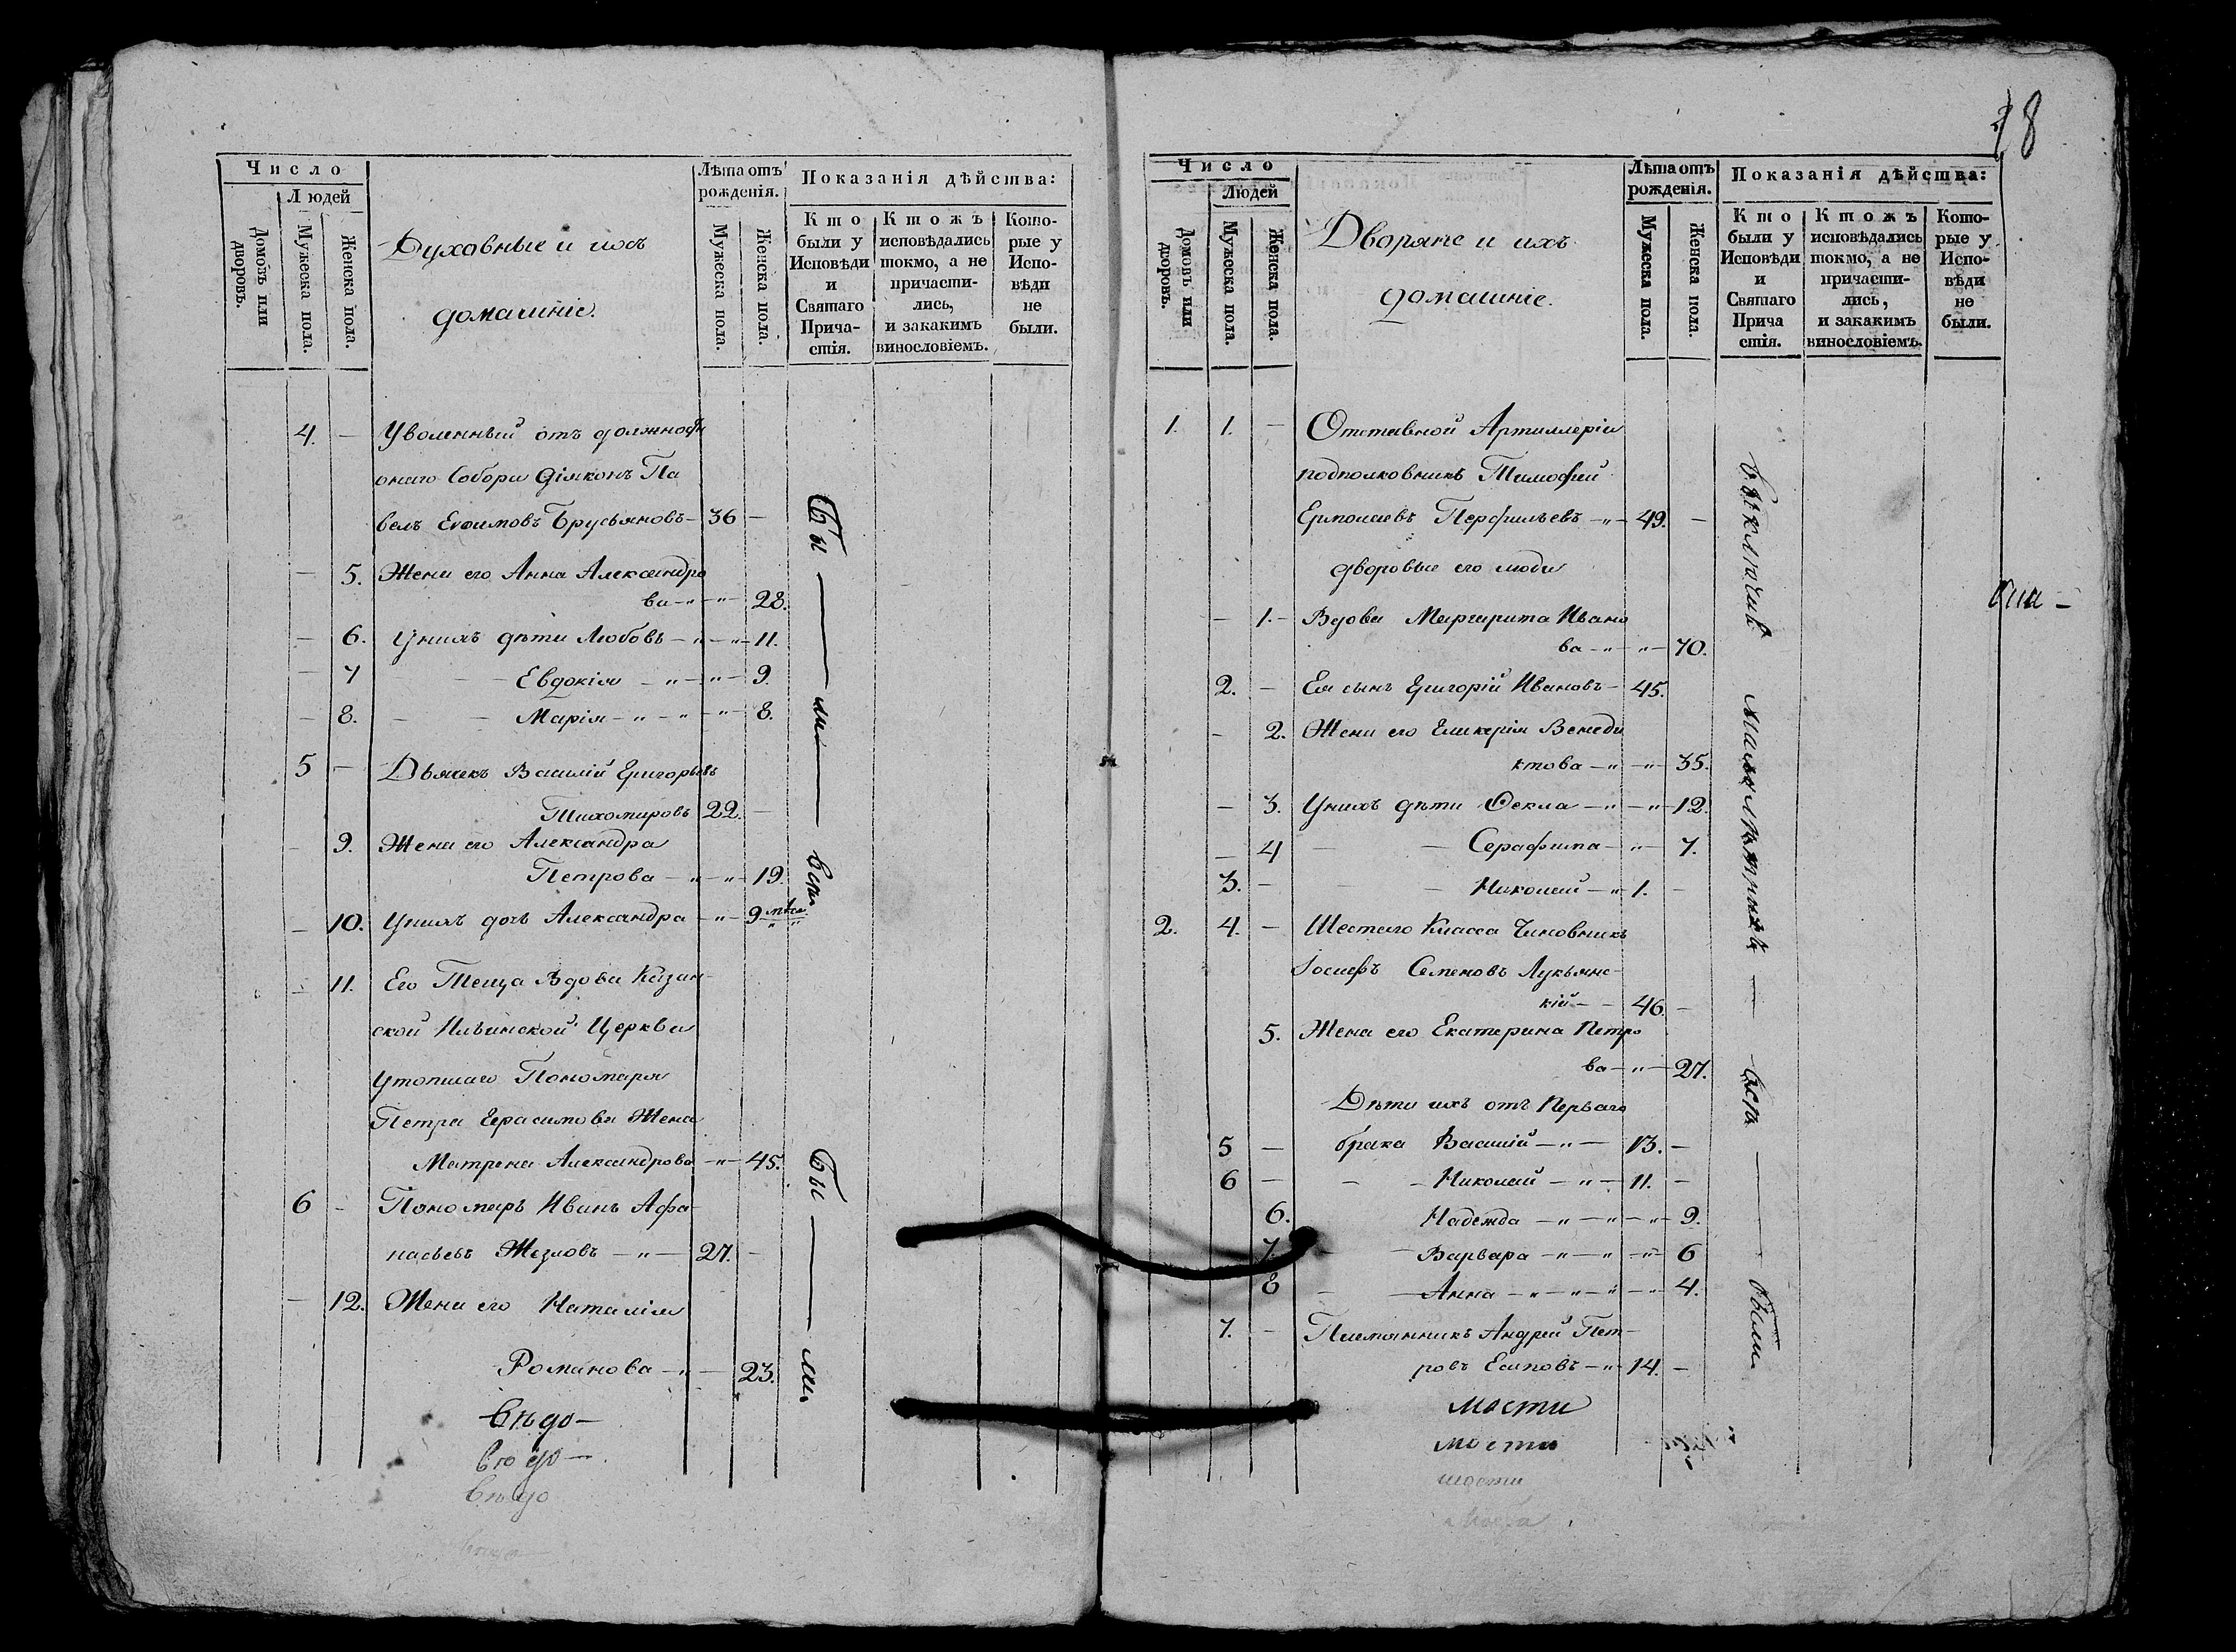 Число
Людей
Домовъ или дворовъ.
Мужеска пола.
Женска пола.
Духовные и ихъ
домашніе.
Лѣта отъ рожденія.
Мужеска пола.
Женска пола.
Показанія дѣйства:
Кто были у Исповѣди и Святаго Причастія.
Ктожъ исповѣдались токмо, а не причастились, и закакимъ винословіемъ.
Которые у Исповѣди не были.
4. — Уволенный отъ должности
онаго Собора Діяконъ Па
велъ Евѳимовъ Брусьяновъ — 36 —
— 5. Жена его Анна Александро
ва — " — " — 28.
— 6. Унихъ дѣти Любовь — " — " — 11.
— 7 — — Евдокія — " — " — 9.
— 8. — — Марія — " — " — " — 8.
5 — Дьячекъ Василій Григорьевъ
Тихомировъ 22. —
— 9. Жена его Александра
Петрова — " — " — 19.
— 10. Унихъ дочь Александра — " — 9 мѣся.
— 11. Его Теща Вдова Казан-
ской Ильинской Церкви
Утопшаго Пономаря
Петра Герасимова Жена
Матрена Александрова — " — 45.
6 — Пономарь Иванъ Афа-
насьевъ Жезловъ — " — 27. —
— 12. Жена его Наталія
Романова — " — 23.
Бы — ли — вси
Бы — ли.
вѣдо —
вѣдо —
вѣдо
18
Число
Людей
Домовъ или дворовъ.
Мужеска пола.
Женска пола.
Дворяне и ихъ
домашніе.
Лѣта отъ рожденія.
Мужеска пола.
Женска пола.
Показанія дѣйства:
Кто были у Исповѣди и Святаго Причастія.
Ктожъ исповѣдались токмо, а не причастились, и закакимъ винословіемъ.
Которые у Исповѣди не были.
1. 1. — Отставной Артиллеріи
подполковникъ Тимофей
Ермолаевъ Перфильевъ — " — 49. —
дворовые его люди
— 1. — Вдова Маргарита Ивано
ва — " — " — 70.
2. — Ея сынъ Григорій Ивановъ — 45.
— 2. Жена его Гликерія Венеди
ктова — " — " — 35.
— 3. Унихъ дѣти Ѳекла — " — " — 12.
— 4 — — Серафима — " — 7.
3. — — — Николай — " 1. —
2. 4. — Шестаго Класса Чиновникъ
Іосифъ Семеновъ Лукьянс-
кій — — 46. —
5. Жена его Екатерина Петро
ва — " — 27.
Дѣти ихъ отъ Перваго
5 — брака Василій — " — 13. —
6 — — — Николай — " — 11. —
6. Надежда — " — " — " — 9.
7. — — Варвара — " — " — " — 6
8 — — Анна — " — " — " — " — 4.
7. — Племянникъ Андрей Пет-
ровъ Есиповъ — " — 14. —
выключая малолѣтныхъ — всѣ — были.
мости
мости
мости